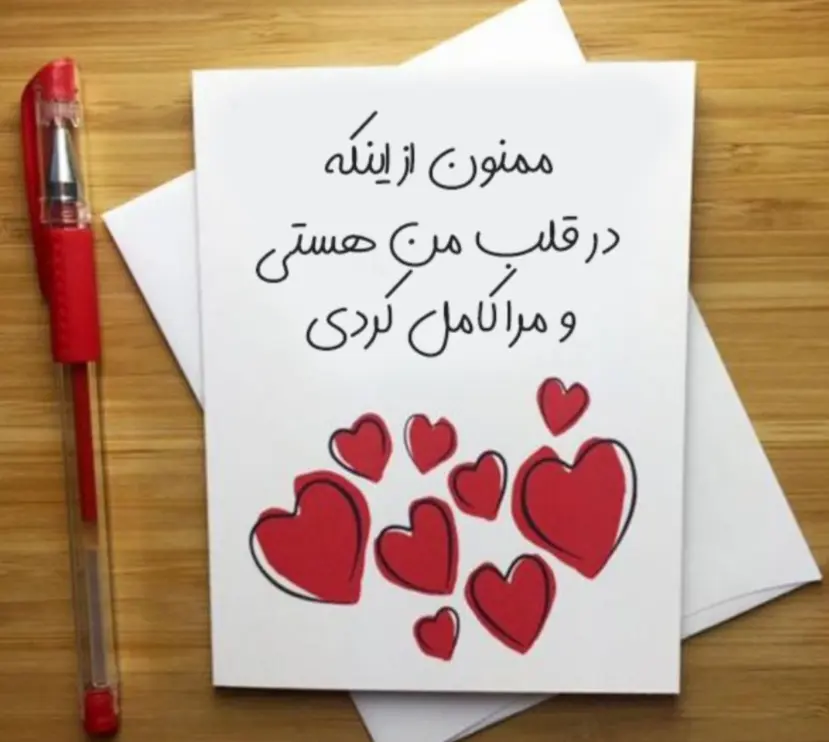 ممنون از اینکه
در قلب من هستی
و مرا کامل کردی